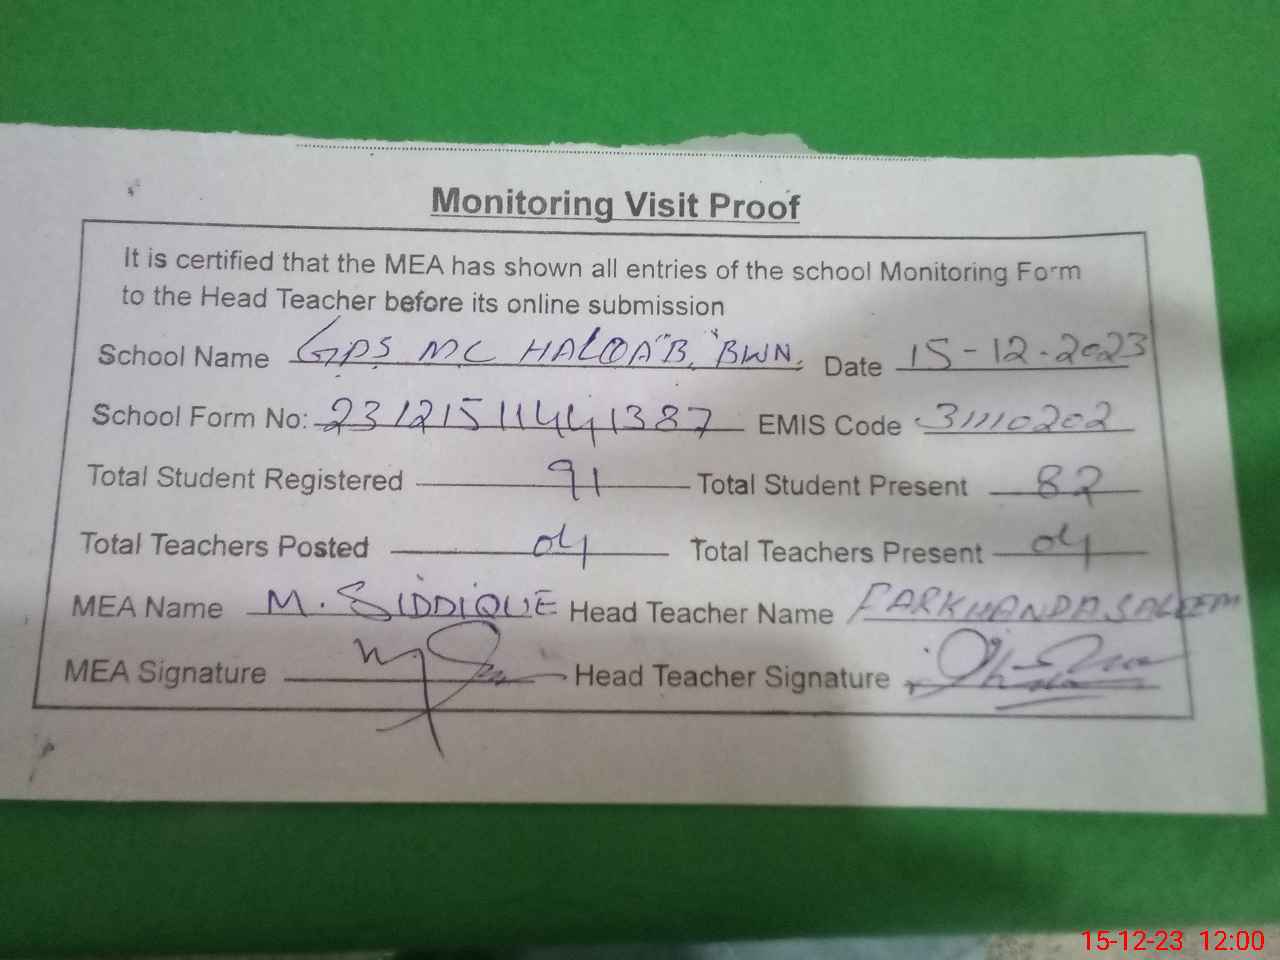 Monitoring Visit Proof
It is certified that the MEA has shown all entries of the school Monitoring Form
to the Head Teacher before its online submission
School Name GPS MC BWN. Date 15-12-2023
School Form No: 23121511441387 EMIS Code 31110202
Total Student Registered 91 Total Student Present 82
Total Teachers Posted 04 Total Teachers Present 04
MEA Name M. SIDDIQUE Head Teacher Name FARKHANDA SALEEM
MEA Signature Head Teacher Signature
15-12-23 12:00